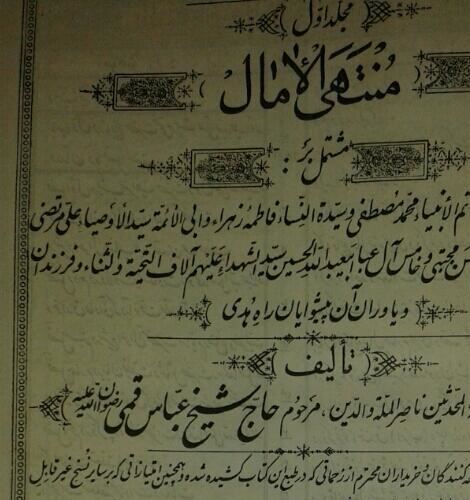 مجلد اوّل
مُنتَهَی الآمال
مشتمل بر:
تم لأنبیاء محمّد مصطفی و سیّدة النّساء فاطمهٔ زهراء و ابی الأئمّة سیّد الأوصیاء علی مرتضی
مجتبی و خامس آل عبا ابیعبداللّه الحسین سیّد الشهداء علیهم آلاف التّحیّة والثناء و فرزندان
و یاوران آن پیشوایان راه هُدی
تألیف
المحدّثین ناصر الملّة والدّین، مرحوم حاج شیخ عبّاس قمی رضوان اللّه علیه
کنندگان و خریداران محترم از زحماتی که در طبع این کتاب کشیده شده و همچنین امتیازاتی که بر سایر نسخ غیر قابل